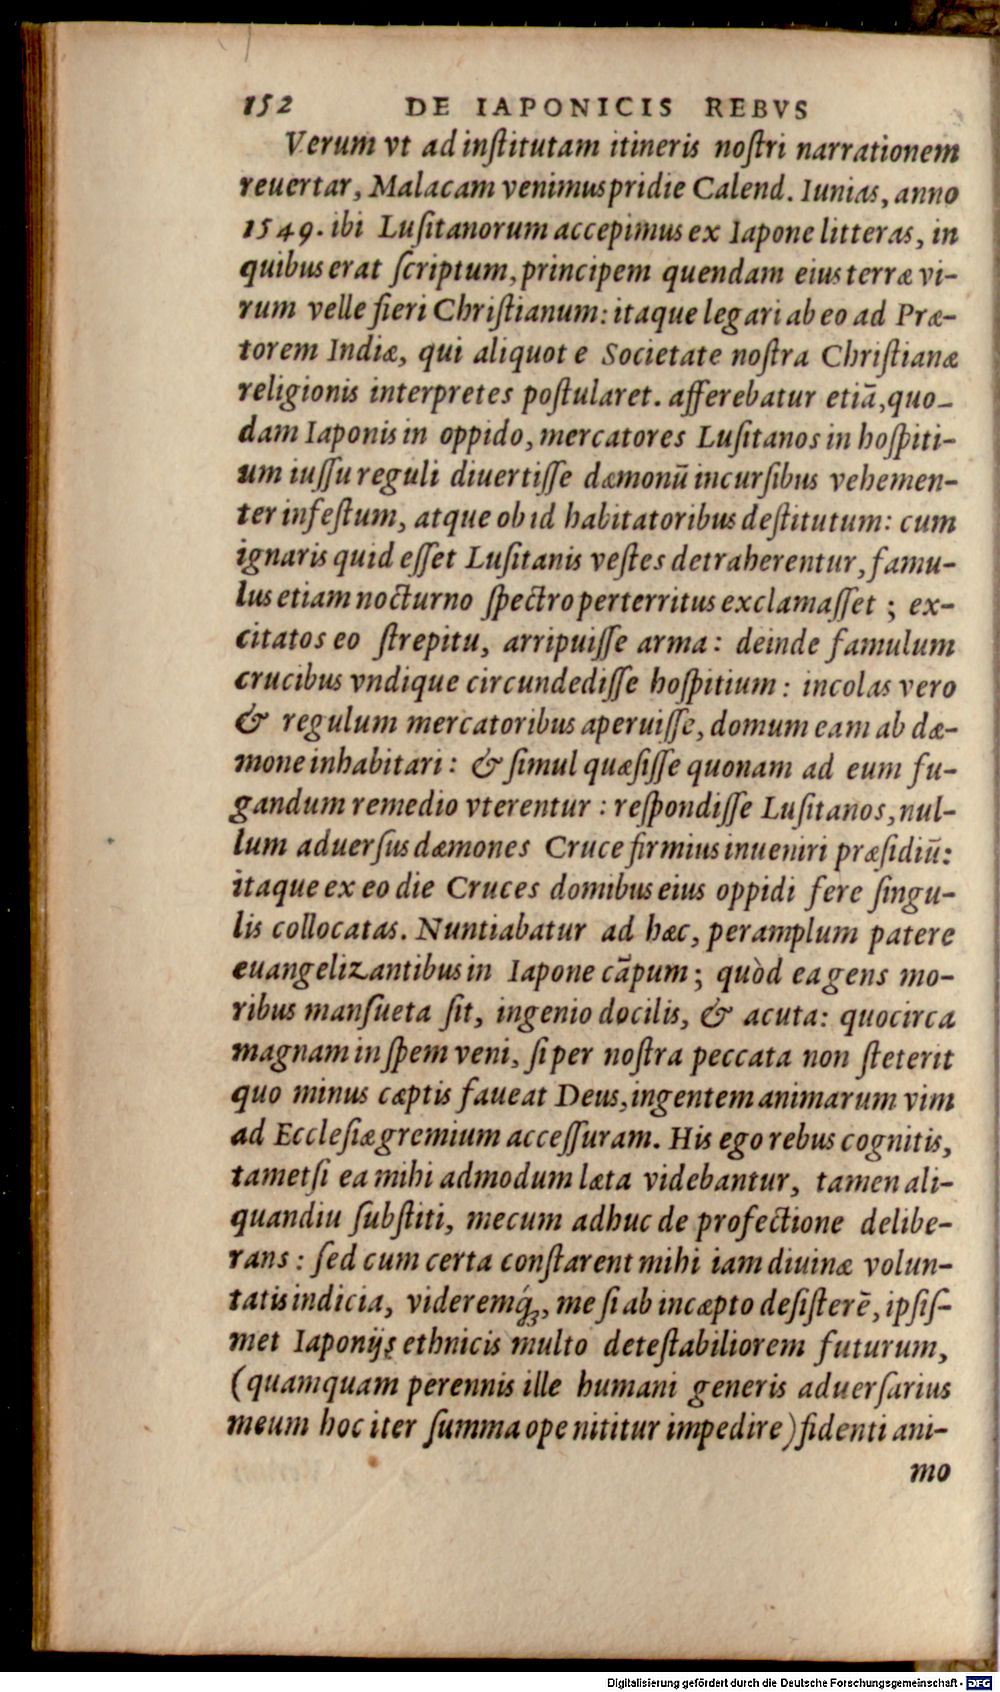 152 DE IAPONICIS REBVS
Verum vt ad inſtitutam itineris noſtri narrationem
reuertar, Malacam venimus pridie Calend. Iunias, anno
1549. ibi Luſitanorum accepimus ex Iapone litteras, in
quibus erat ſcriptum, principem quendam eius terræ vi-
rum velle fieri Chriſtianum: itaque legari ab eo ad Præ-
torem Indiæ, qui aliquot e Societate noſtra Chriſtianæ
religionis interpretes poſtularet. afferebatur etiā, quo-
dam Iaponis in oppido, mercatores Luſitanos in hoſpiti-
um iuſſu reguli diuertiſſe dæmonū incurſibus vehemen-
ter infeſtum, atque ob id habitatoribus deſtitutum: cum
ignaris quid eſſet Luſitanis veſtes detraherentur, famu-
lus etiam nocturno ſpectro perterritus exclamaſſet; ex-
citatos eo ſtrepitu, arripuiſſe arma: deinde famulum
crucibus vndique circundediſſe hoſpitium: incolas vero
& regulum mercatoribus aperuiſſe, domum eam ab dæ-
mone inhabitari: & ſimul quæſiſſe quonam ad eum fu-
gandum remedio vterentur: reſpondiſſe Luſitanos, nul-
lum aduerſus dæmones Cruce firmius inueniri præſidiū:
itaque ex eo die Cruces domibus eius oppidi fere ſingu-
lis collocatas. Nuntiabatur ad hæc, peramplum patere
euangelizantibus in Iapone cāpum; quòd ea gens mo-
ribus manſueta ſit, ingenio docilis, & acuta: quocirca
magnam in ſpem veni, ſi per noſtra peccata non ſteterit
quo minus cæptis faueat Deus, ingentem animarum vim
ad Eccleſiæ gremium acceſſuram. His ego rebus cognitis,
tametſi ea mihi admodum læta videbantur, tamen ali-
quandiu ſubſtiti, mecum adhuc de profectione delibe-
rans: ſed cum certa conſtarent mihi iam diuinæ volun-
tatis indicia, videremq́ꝫ, me ſi ab incæpto deſiſterē, ipſiſ-
met Iaponijs ethnicis multo deteſtabiliorem futurum,
(quamquam perennis ille humani generis aduerſarius
meum hoc iter ſumma ope nititur impedire) fidenti ani-
mo
Digitalisierung gefördert durch die Deutsche Forschungsgemeinschaft - DFG